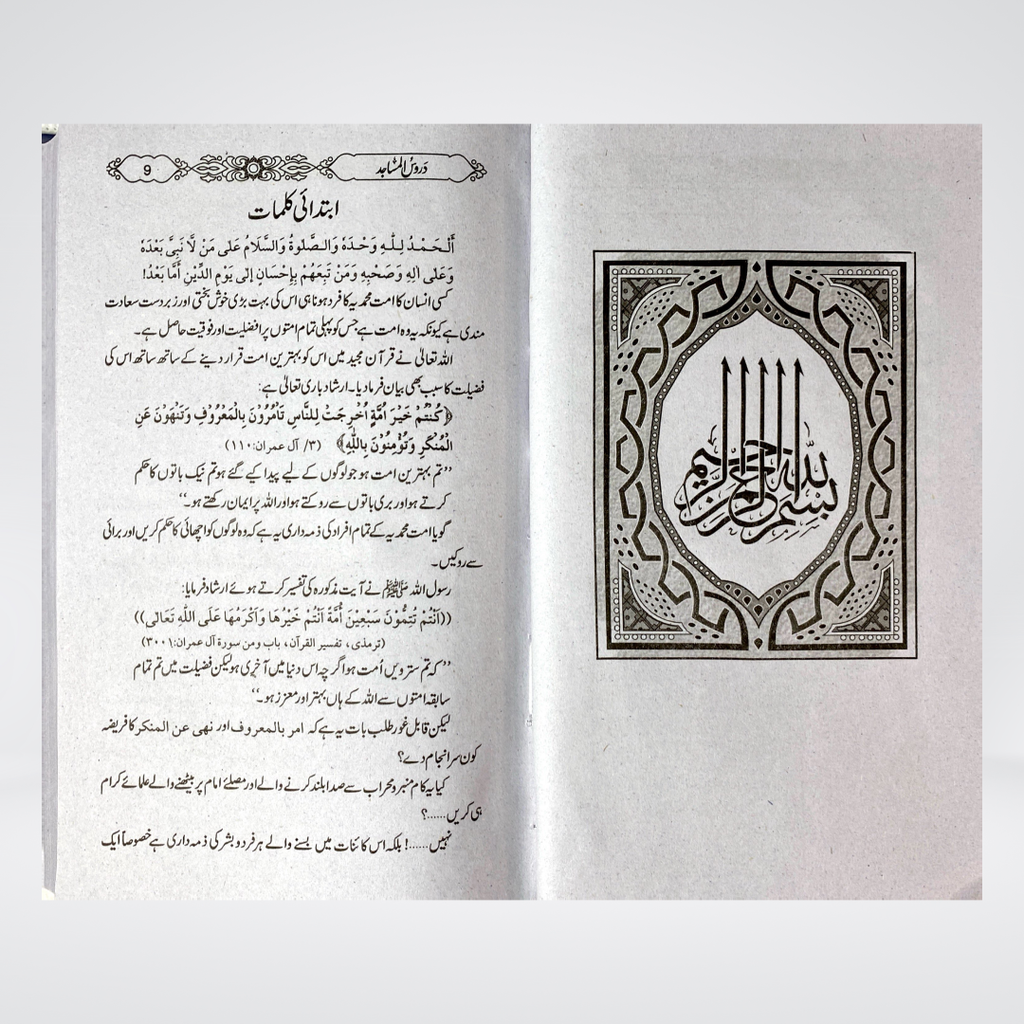 بسم الله الرحمن الرحيم
دروس المساجد
9
ابتدائی کلمات
أَلْحَمْدُ لِلّٰهِ وَحْدَهٗ وَالصَّلٰوةُ وَالسَّلَامُ عَلٰى مَنْ لَّا نَبِىَّ بَعْدَهٗ
وَعَلٰى اٰلِهٖ وَصَحْبِهٖ وَمَنْ تَبِعَهُمْ بِإِحْسَانٍ إِلٰى يَوْمِ الدِّيْنِ أَمَّا بَعْدُ!
کسی انسان کا امت محمدیہ کا فرد ہونا ہی اس کی بہت بڑی خوش بختی اور زبردست سعادت
مندی ہے کیونکہ یہ وہ امت ہے جس کو پہلی تمام امتوں پر افضلیت اور فوقیت حاصل ہے۔
اللہ تعالیٰ نے قرآن مجید میں اس کو بہترین امت قرار دینے کے ساتھ ساتھ اس کی
فضیلت کا سبب بھی بیان فرما دیا۔ ارشاد باری تعالیٰ ہے:
﴿كُنْتُمْ خَيْرَ اُمَّةٍ اُخْرِجَتْ لِلنَّاسِ تَاْمُرُوْنَ بِالْمَعْرُوْفِ وَتَنْهَوْنَ عَنِ
الْمُنْكَرِ وَتُؤْمِنُوْنَ بِاللّٰهِ﴾ (۳/ آل عمران: ۱۱۰)
”تم بہترین امت ہو جو لوگوں کے لیے پیدا کیے گئے ہو تم نیک باتوں کا حکم
کرتے ہو اور بری باتوں سے روکتے ہو اور اللہ پر ایمان رکھتے ہو۔“
گویا امت محمدیہ کے تمام افراد کی ذمہ داری یہ ہے کہ وہ لوگوں کو اچھائی کا حکم کریں اور برائی
سے روکیں۔
رسول اللہ ﷺ نے آیت مذکورہ کی تفسیر کرتے ہوئے ارشاد فرمایا:
((اَنْتُمْ تُتِمُّوْنَ سَبْعِيْنَ أُمَّةً اَنْتُمْ خَيْرُهَا وَاَكْرَمُهَا عَلَى اللّٰهِ تَعَالٰى))
(ترمذی، تفسیر القرآن، باب ومن سورة آل عمران: ۳۰۰۱)
”کہ تم سترویں اُمت ہو اگرچہ اس دنیا میں آخری ہو لیکن فضیلت میں تم تمام
سابقہ امتوں سے اللہ کے ہاں بہتر اور معزز ہو۔“
لیکن قابل غور طلب بات یہ ہے کہ امر بالمعروف اور نهى عن المنكر کا فریضہ
کون سرانجام دے؟
کیا یہ کام منبر و محراب سے صدا بلند کرنے والے اور مصلٰئے امام پر بیٹھنے والے علمائے کرام
ہی کریں......؟
نہیں......! بلکہ اس کائنات میں بسنے والے ہر فرد و بشر کی ذمہ داری ہے خصوصاً ایک